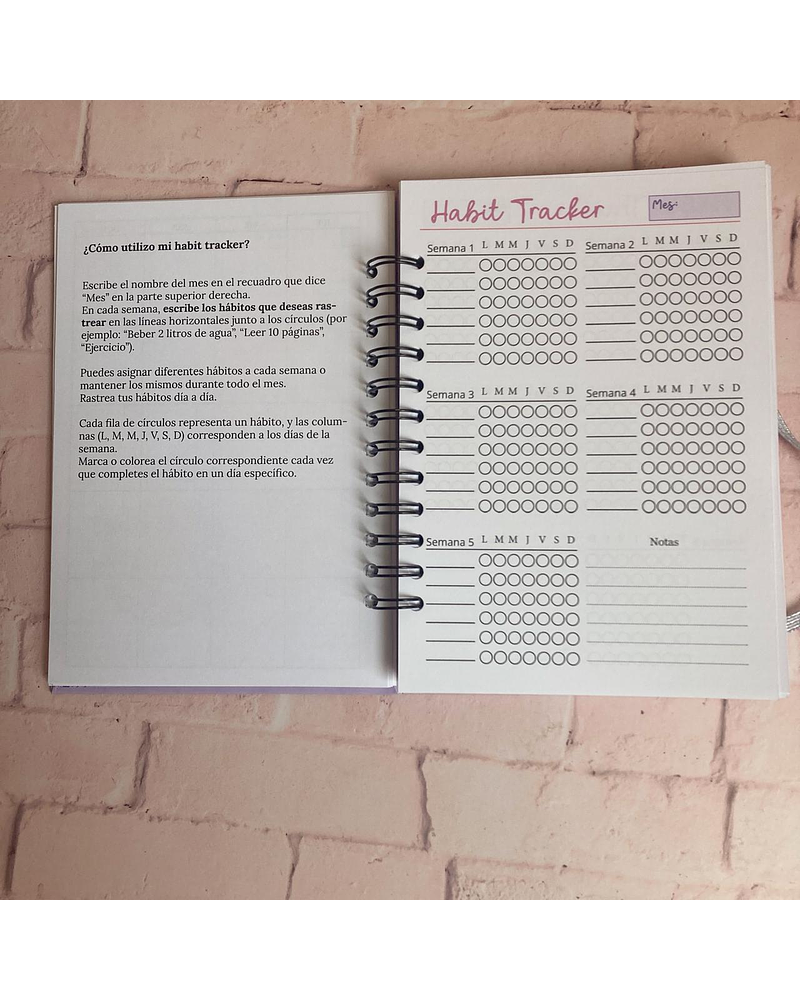 ¿Cómo utilizo mi habit tracker?
Escribe el nombre del mes en el recuadro que dice
“Mes” en la parte superior derecha.
En cada semana, escribe los hábitos que deseas ras-
trear en las líneas horizontales junto a los círculos (por
ejemplo: “Beber 2 litros de agua”, “Leer 10 páginas”,
“Ejercicio”).
Puedes asignar diferentes hábitos a cada semana o
mantener los mismos durante todo el mes.
Rastrea tus hábitos día a día.
Cada fila de círculos representa un hábito, y las colum-
nas (L, M, M, J, V, S, D) corresponden a los días de la
semana.
Marca o colorea el círculo correspondiente cada vez
que completes el hábito en un día específico.
Habit Tracker
Mes:
Semana 1 L M M J V S D
Semana 2 L M M J V S D
Semana 3 L M M J V S D
Semana 4 L M M J V S D
Semana 5 L M M J V S D
Notas